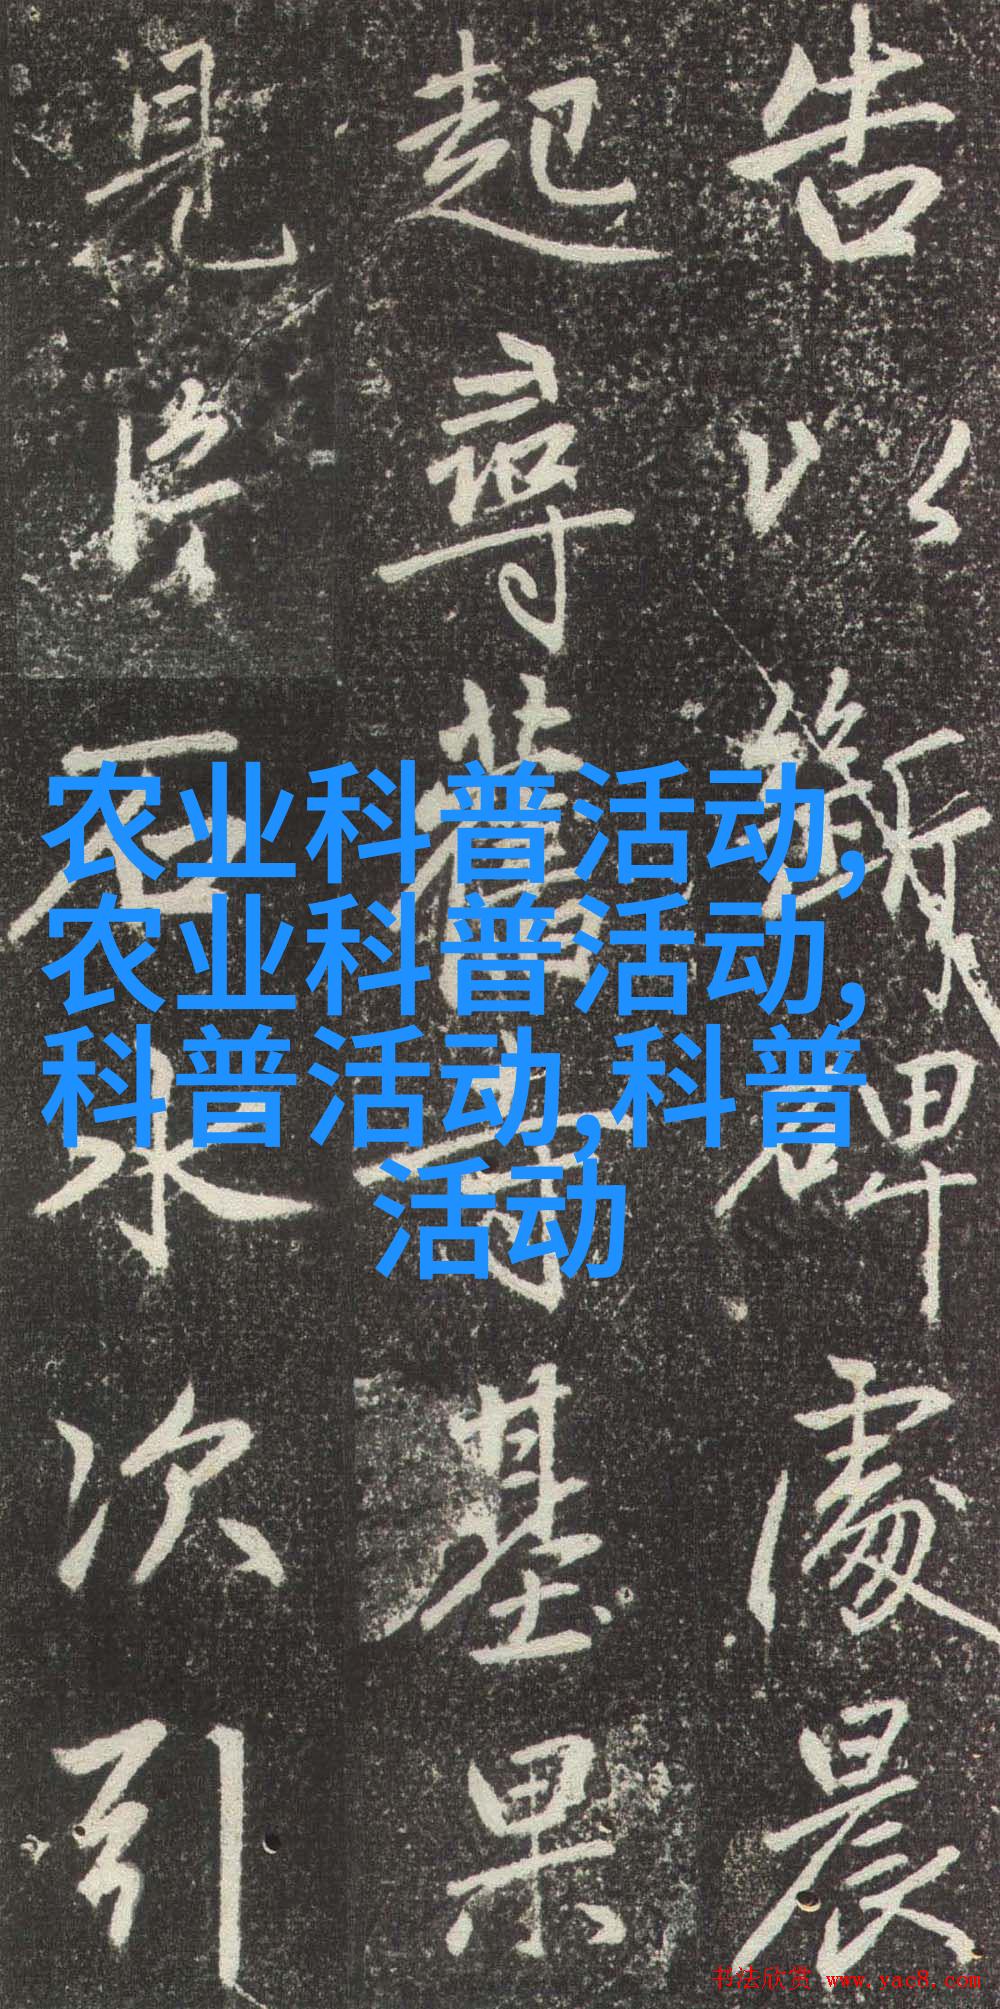 告以斲碑處晨
起尋舊寺基果
見片石水次引
农业科普活动,
农业科普活动,
科普活动,科普
活动
书法欣赏 www.yac8.com